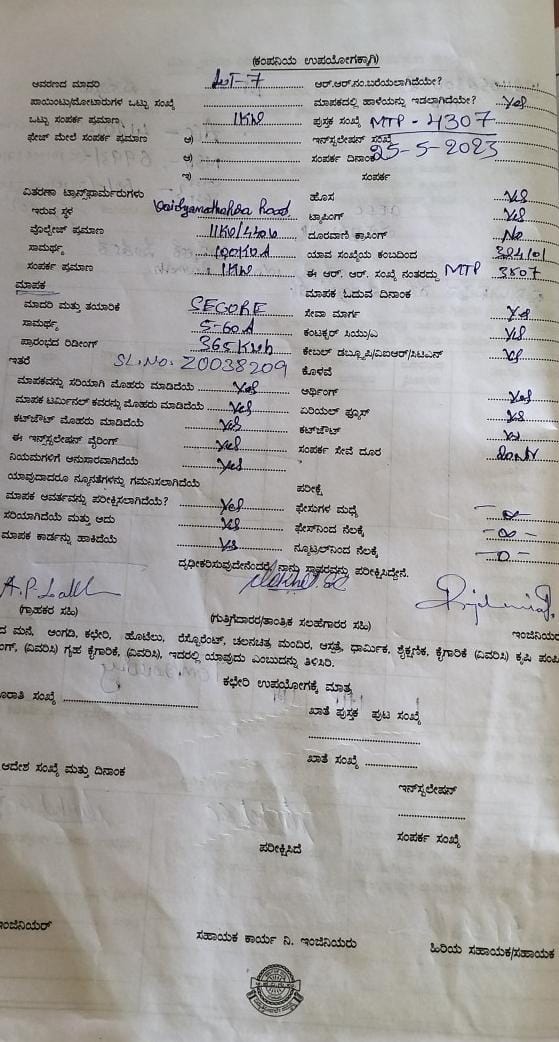 (ಕಂಪನಿಯ ಉಪಯೋಗಕ್ಕಾಗಿ)
ಆವರಣದ ಮಾದರಿ LT-7 ಆರ್.ಆರ್.ನಂ.ಬರೆಯಲಾಗಿದೆಯೇ?
ಪಾಯಿಂಟು/ಮೋಟಾರುಗಳ ಒಟ್ಟು ಸಂಖ್ಯೆ ಮಾಪಕದಲ್ಲಿ ಹಾಳೆಯನ್ನು ಇಡಲಾಗಿದೆಯೇ? Yes
ಒಟ್ಟು ಸಂಪರ್ಕ ಪ್ರಮಾಣ 1KW ಪುಸ್ತಕ ಸಂಖ್ಯೆ MTP - 4307
ಫೇಜ್ ಮೇಲೆ ಸಂಪರ್ಕ ಪ್ರಮಾಣ ಅ) ಇನ್ಸ್ಟಲೇಷನ್ ಸಂಖ್ಯೆ
ಆ) ಸಂಪರ್ಕ ದಿನಾಂಕ 25-5-2023
ಇ) ಸಂಪರ್ಕ
ವಿತರಣಾ ಟ್ರಾನ್ಸ್‌ಫಾರ್ಮರುಗಳು ಹೊಸ Yes
ಇರುವ ಸ್ಥಳ Road ಟ್ಯಾಪಿಂಗ್ Yes
ವೊಲ್ಟೇಜ್ ಪ್ರಮಾಣ 11KV/440V ದೂರವಾಣಿ ಕ್ರಾಸಿಂಗ್ No
ಸಾಮರ್ಥ್ಯ 100KVA ಯಾವ ಸಂಖ್ಯೆಯ ಕಂಬದಿಂದ
ಸಂಪರ್ಕ ಪ್ರಮಾಣ 1KW ಈ ಆರ್. ಆರ್. ಸಂಖ್ಯೆ ನಂತರದ್ದು MTP 3807
ಮಾಪಕ ಮಾಪಕ ಓದುವ ದಿನಾಂಕ
ಮಾದರಿ ಮತ್ತು ತಯಾರಿಕೆ SECURE ಸೇವಾ ಮಾರ್ಗ Yes
ಸಾಮರ್ಥ್ಯ 5-60A ಕಂಟಕ್ಟರ್ ಸಿಯು/ಎ Yes
ಪ್ರಾರಂಭದ ರಿಡೀಂಗ್ 365Kwh ಕೇಬಲ್ ಡಬ್ಲ್ಯೂಪಿ/ವಿಐಆರ್/ಸಿಟಿಎಸ್ Yes
ಇತರೆ SL.NO. Z0038209 ಕೊಳವೆ
ಮಾಪಕವನ್ನು ಸರಿಯಾಗಿ ಮೊಹರು ಮಾಡಿದೆಯೆ Yes ಅರ್ಥಿಂಗ್ Yes
ಮಾಪಕ ಟರ್ಮಿನಲ್ ಕವರನ್ನು ಮೊಹರು ಮಾಡಿದೆಯೆ Yes ಏರಿಯಲ್ ಫ್ಯೂಸ್ Yes
ಕಟ್‌ಔಟ್ ಮೊಹರು ಮಾಡಿದೆಯೆ Yes ಕಟ್‌ಔಟ್ Yes
ಈ ಇನ್‌ಸ್ಟಲೇಷನ್ ವೈರಿಂಗ್ Yes ಸಂಪರ್ಕ ಸೇವೆ ದೂರ
ನಿಯಮಗಳಿಗೆ ಅನುಸಾರವಾಗಿದೆಯೆ Yes
ಯಾವುದಾದರೂ ನ್ಯೂನತೆಗಳನ್ನು ಗಮನಿಸಲಾಗಿದೆಯೆ ಪರೀಕ್ಷೆ
ಮಾಪಕ ಆವರ್ತವನ್ನು ಪರೀಕ್ಷಿಸಲಾಗಿದೆಯೆ? Yes ಫೇಸುಗಳ ಮಧ್ಯೆ -∞-
ಸರಿಯಾಗಿದೆಯೆ ಮತ್ತು ಅದು Yes ಫೇಸ್‌ನಿಂದ ನೆಲಕ್ಕೆ -∞-
ಮಾಪಕ ಕಾರ್ಡನ್ನು ಹಾಕಿದೆಯೆ Yes ನ್ಯೂಟ್ರಲ್‌ನಿಂದ ನೆಲಕ್ಕೆ -0-
ದೃಢೀಕರಿಸುವುದೇನೆಂದರೆ, ನಾನು ಸ್ಥಾವರವನ್ನು ಪರೀಕ್ಷಿಸಿದ್ದೇನೆ.
(ಗ್ರಾಹಕರ ಸಹಿ) (ಗುತ್ತಿಗೆದಾರರ/ತಾಂತ್ರಿಕ ಸಲಹೆಗಾರರ ಸಹಿ) ಇಂಜಿನಿಯರ
ದ ಮನೆ, ಅಂಗಡಿ, ಕಛೇರಿ, ಹೊಟೆಲು, ರೆಸ್ಟೋರೆಂಟ್, ಚಲನಚಿತ್ರ ಮಂದಿರ, ಆಸ್ಪತ್ರೆ, ಧಾರ್ಮಿಕ, ಶೈಕ್ಷಣಿಕ, ಕೈಗಾರಿಕೆ (ವಿವರಿಸಿ) ಕೃಷಿ ಪಂಪಿ
ಂಗ್, (ವಿವರಿಸಿ) ಗೃಹ ಕೈಗಾರಿಕೆ, (ವಿವರಿಸಿ), ಇದರಲ್ಲಿ ಯಾವುದು ಎಂಬುದನ್ನು ತಿಳಿಸಿರಿ.
ಕಛೇರಿ ಉಪಯೋಗಕ್ಕೆ ಮಾತ್ರ
ಾರಾತಿ ಸಂಖ್ಯೆ ಖಾತೆ ಪುಸ್ತಕ ಪುಟ ಸಂಖ್ಯೆ
ಖಾತೆ ಸಂಖ್ಯೆ
ಆದೇಶ ಸಂಖ್ಯೆ ಮತ್ತು ದಿನಾಂಕ
ಇನ್‌ಸ್ಟಲೇಷನ್
ಸಂಪರ್ಕ ಸಂಖ್ಯೆ
ಪರೀಕ್ಷಿಸಿದೆ
ಇಂಜಿನಿಯರ್ ಸಹಾಯಕ ಕಾರ್ಯ ನಿ. ಇಂಜಿನಿಯರು ಹಿರಿಯ ಸಹಾಯಕ/ಸಹಾಯಕ